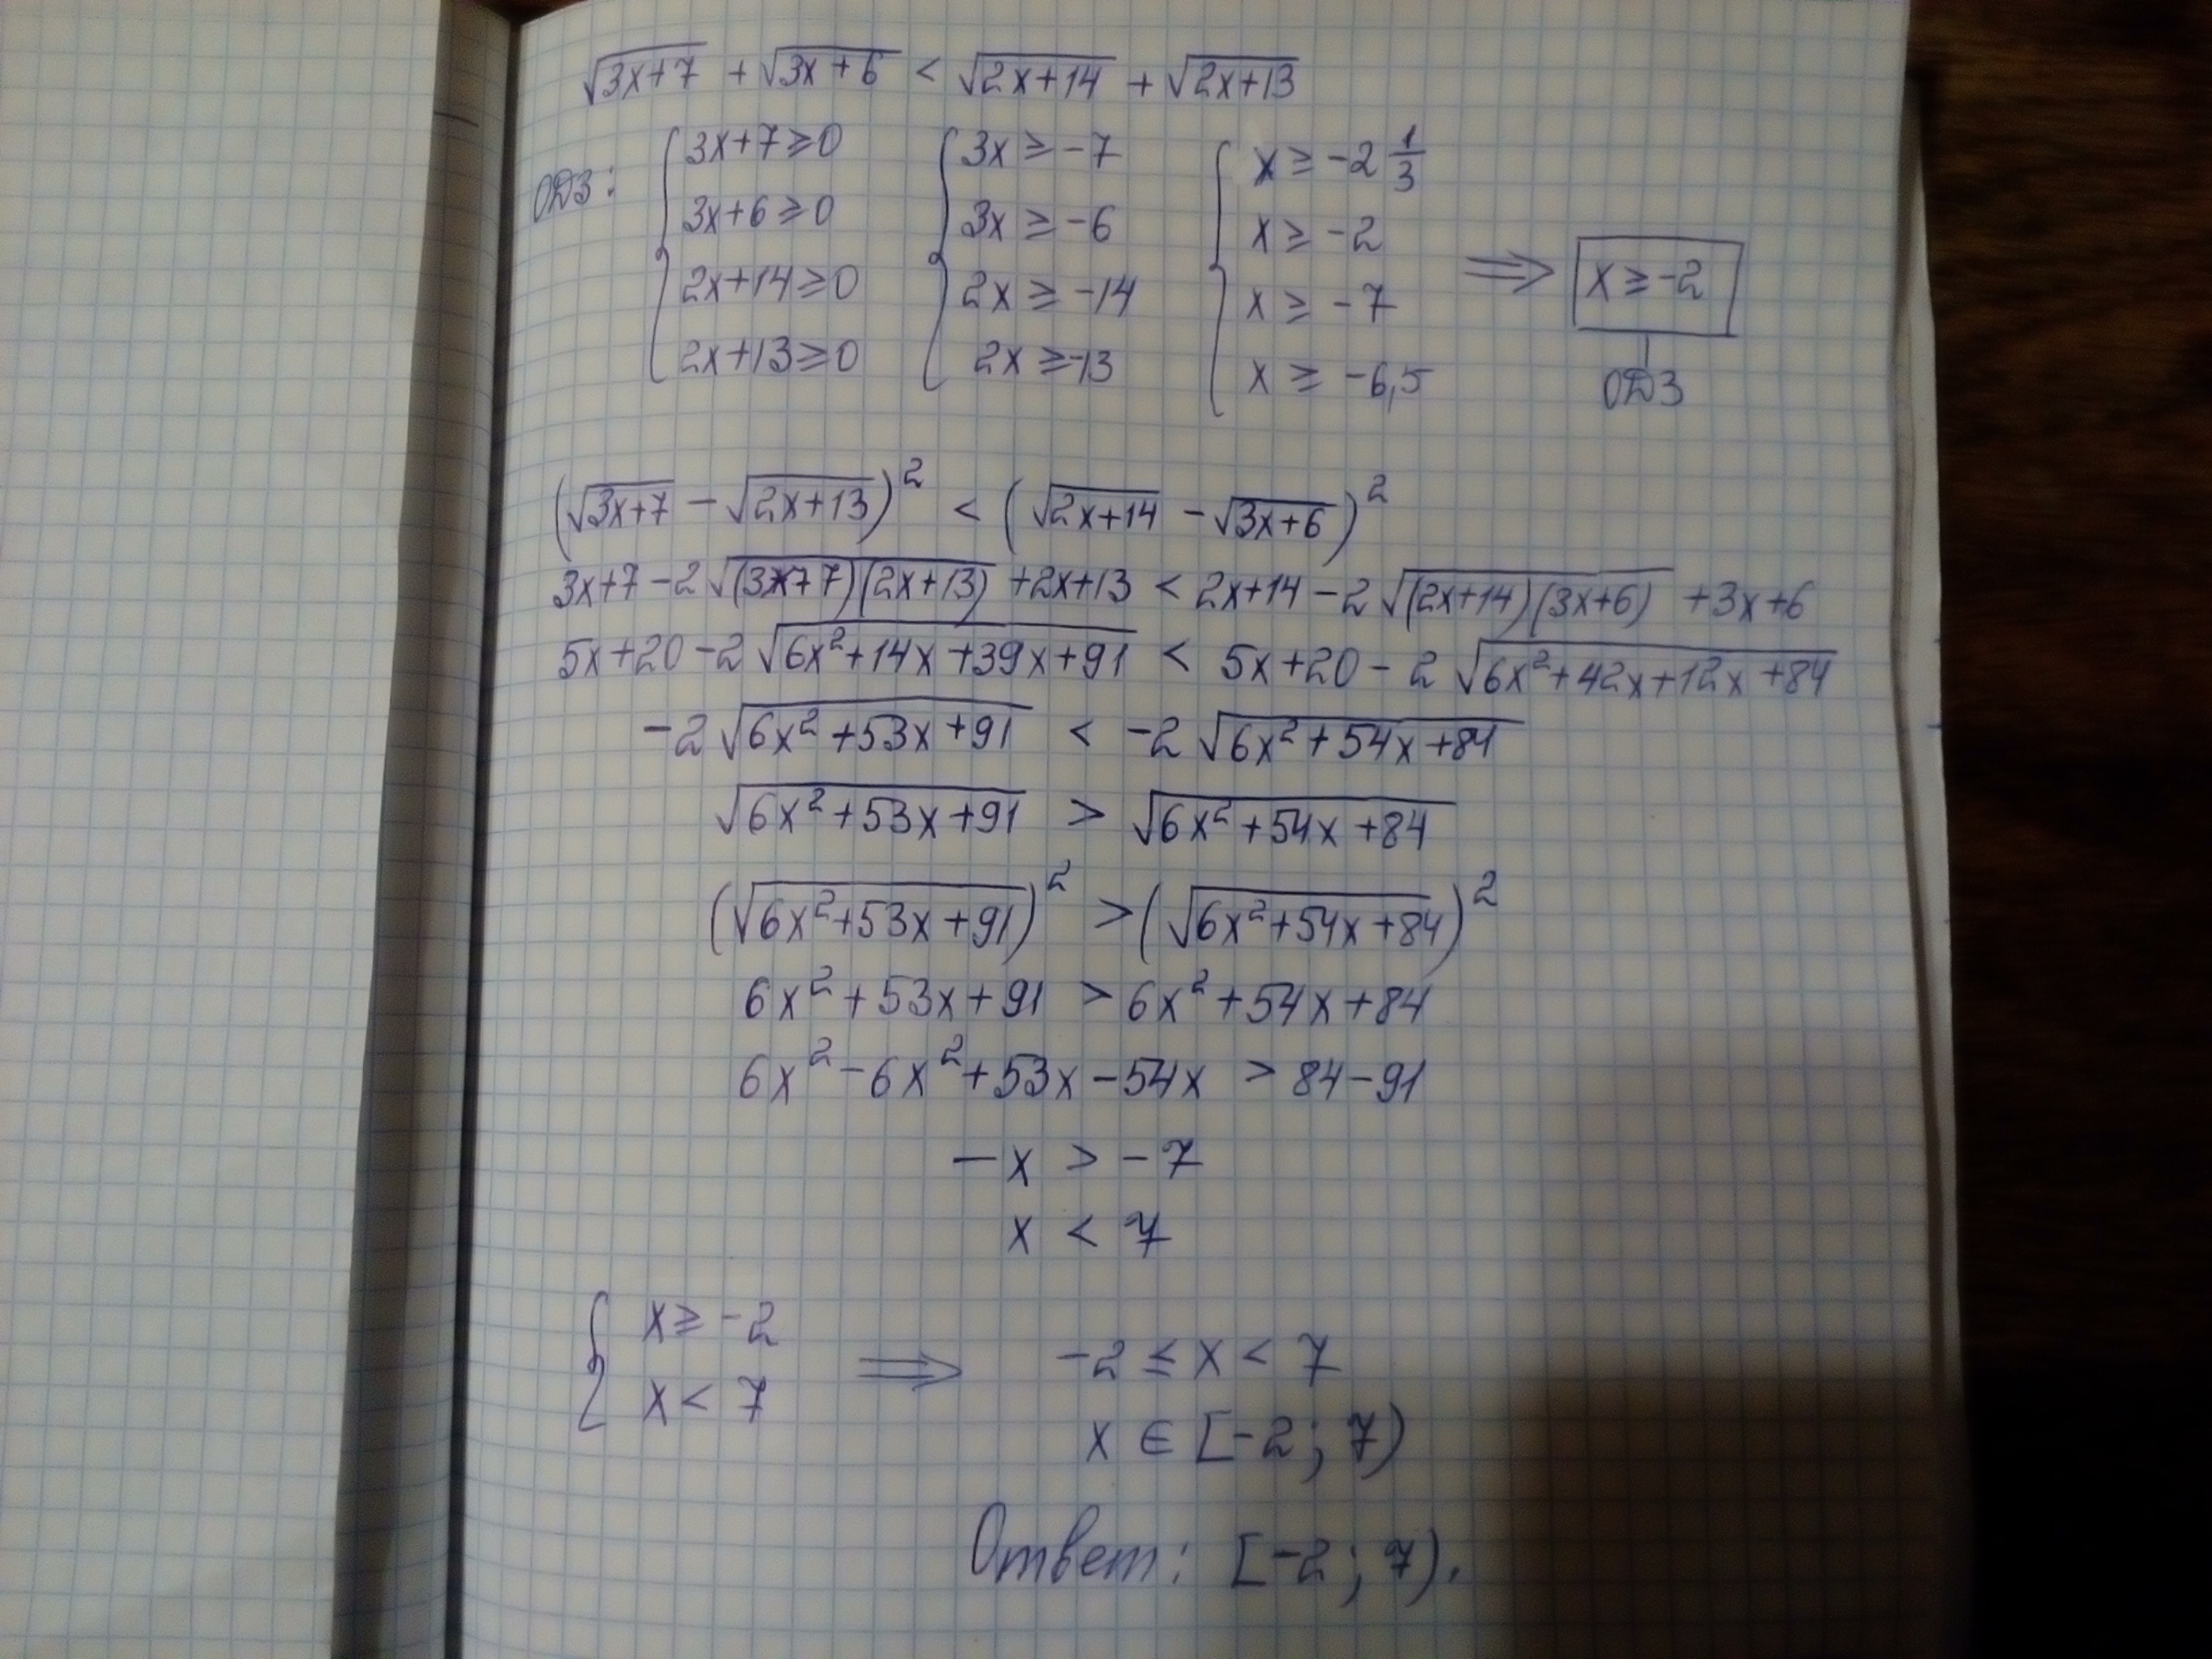 √(3x+7) + √(3x+6) < √(2x+14) + √(2x+13)
ОДЗ: { 3x+7≥0 { 3x ≥ -7 { x ≥ -2 1/3
3x+6≥0 3x ≥ -6 x ≥ -2
2x+14≥0 2x ≥ -14 x ≥ -7 ⟹ x ≥ -2
2x+13≥0 2x ≥ -13 x ≥ -6,5 ОДЗ
(√(3x+7) - √(2x+13))² < (√(2x+14) - √(3x+6))²
3x+7-2√((3x+7)(2x+13)) +2x+13 < 2x+14-2√((2x+14)(3x+6)) +3x+6
5x+20-2√(6x²+14x+39x+91) < 5x+20-2√(6x²+42x+12x+84)
-2√(6x²+53x+91) < -2√(6x²+54x+84)
√(6x²+53x+91) > √(6x²+54x+84)
(√(6x²+53x+91))² > (√(6x²+54x+84))²
6x²+53x+91 > 6x²+54x+84
6x²-6x²+53x-54x > 84-91
-x > -7
x < 7
{ x ≥ -2
x < 7 ⟹ -2 ≤ x < 7
x ∈ [-2; 7)
Ответ: [-2; 7).